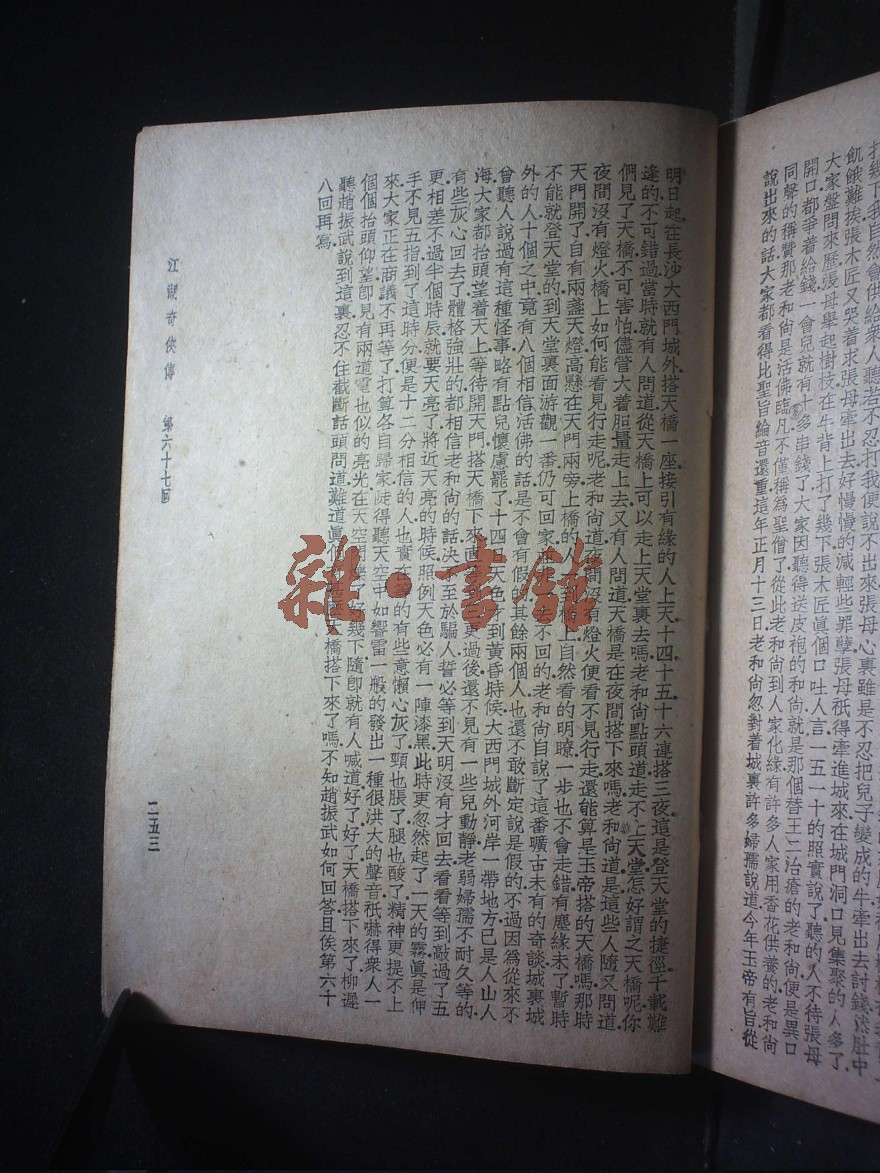 打幾下我自然會供給衆人聽若不打我便說不出來張母心裏雖是不忍把兒子變成的牛牽出去討錢然肚中
飢餓難挨張木匠又哭着求張母牽出去好慢慢的減輕些罪孽張母祇得牽進城來在城門洞口見集聚的人多了
大家盤問來歷張母舉起樹枝在牛背上打了幾下張木匠眞個口吐人言一五一十的照實說了聽的人不待張母
開口都爭着給錢一會兒就有十多串錢了大家因聽得送皮袍的和尙就是那個替王二治瘡的老和尙便是異口
同聲的稱贊那老和尙是活佛臨凡不僅稱爲聖僧了從此老和尙到人家化緣有許多人家用香花供養的老和尙
說出來的話大家都看得比聖旨綸音還重這年正月十三日老和尙忽對着城裏許多婦孺說道今年玉帝有旨從
明日起在長沙大西門城外搭天橋一座接引有緣的人上天十四十五十六連搭三夜這是登天堂的捷徑千載難
逢的不可錯過當時就有人問道從天橋上可以走上天堂裏去嗎老和尙點頭道走不上天堂怎好謂之天橋呢你
們見了天橋不可害怕儘管大着胆量走上去又有人問道天橋是在夜間搭下來嗎老和尙道是這些人隨又問道
夜間沒有燈火橋上如何能看見行走呢老和尙道夜間沒有燈火便看不見行走還能算是玉帝搭的天橋嗎那時
天門開了自有兩盞天燈高懸在天門兩旁上橋的人橋上自然看的明瞭一步也不會走錯有塵緣未了暫時
不能就登天堂的到天堂裏面游觀一番仍可回家不回的老和尙自說了這番曠古未有的奇談城裏城
外的人十個之中竟有八個相信活佛的話是不會有假的其餘兩個人也還不敢斷定說是假的不過因爲從來不
曾聽人說過有這種怪事略有點兒懷慮罷了十四日天色才到黃昏時候大西門城外河岸一帶地方已是人山人
海大家都抬頭望着天上等待開天門搭天橋下來直更過後還不見有一些兒動靜老弱婦孺不耐久等的
有些灰心回去了體格強壯的都相信老和尙的話決不至於騙人誓必等到天明沒有才回去看看等到敲過了五
更相差不過半個時辰就要天亮了將近天亮的時候照例天色必有一陣漆黑此時更忽然起了一天的霧眞是伸
手不見五指到了這時分便是十二分相信的人也實在等的有些意懶心灰了頸也脹了腿也酸了精神更提不上
來大家正在商議不再等了打算各自歸家陡得聽天空中如響雷一般的發出一種很洪大的聲音祇嚇得衆人一
個個抬頭仰望卽見有兩道電也似的亮光在天空了好幾下隨卽就有人喊道好了好了天橋搭下來了柳遲
聽趙振武說到這裏忍不住截斷話頭問道難道眞個天橋搭下來了嗎不知趙振武如何回答且俟第六十
八回再寫
江湖奇俠傳 第六十七回
二五三
雜·書館